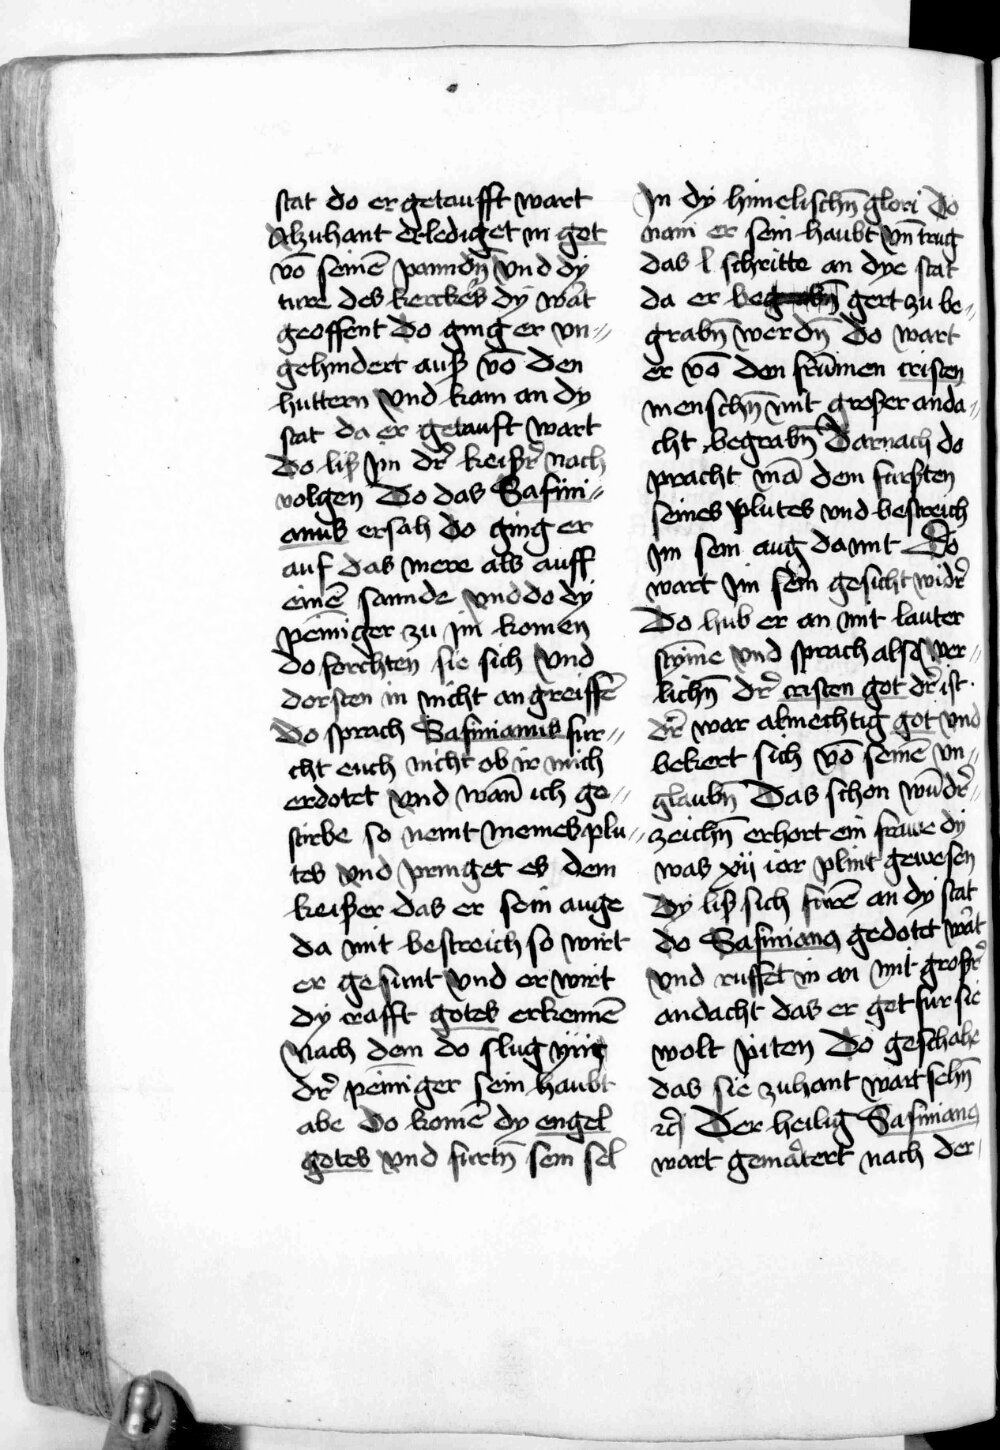 stat do er getaufft wart
Alzuhant erlediget in got
vō seinē panndn̄ vnd dy
ture des kerckers dy wart
geoffent Do ging er vn⸗
gehindert auß vō den
huttern vnd kam an dy
stat da er getauft wart
Do liß im dr̄ keißr̄ nach
volgen Do das Safini⸗
anus ersah do ging er
auf das mere als auff
einē sannde vnd do dy
peiniger zu im komen
do forchten sie sich vnd
dorsten in nicht angreiffē
Do sprach Safinianus fur⸗
cht euch nicht ob ir mich
erdotet vnd wan̄ ich ge⸗
stirbe so nemt meines plu⸗
tes vnd pringet es dem
keißer das er sein auge
da mit bestreich so wirt
er gesunt vnd er wirt
dy crafft gotes erkennē
Nach dem do slug
dr̄ peiniger sein haubt
abe Do komē dy engel
gotes vnd furtn̄ sein sel
In dy himelischn̄ glori Do
nam er sein haubt vn̄ trug
das l schritte an dye stat
da er be gert zu be⸗
grabn̄ werdn̄ Do wart
er vō den frūmen cristen
menschn̄ mit großer anda⸗
cht begrabn̄ Darnach do
pracht mā dem furßten
seines plutes vnd bestreich
im sein aug da mit Do
wart im sein gesicht widr̄
Do hub er an mit lauter
stym̄e vnd sprach also wer⸗
lichn̄ dr̄ cristen got dr̄ ist
dr̄ war almechtig got vnd
bekert sich vō seinē vn⸗
glaubn̄ Das schon wūdr̄⸗
zeichn̄ erhort ein frawe dy
was xij iar plint gewesen
Dy liß sich furē an dy stat
do Safinianꝯ gedotet wart
vnd ruffet in an mit großr̄
andacht das er got fur sie
wolt piten Do geschahe
das sie zuhant wart sehn̄
ꝛc̄ Der heilig Safinianꝯ
wart gemartert nach der